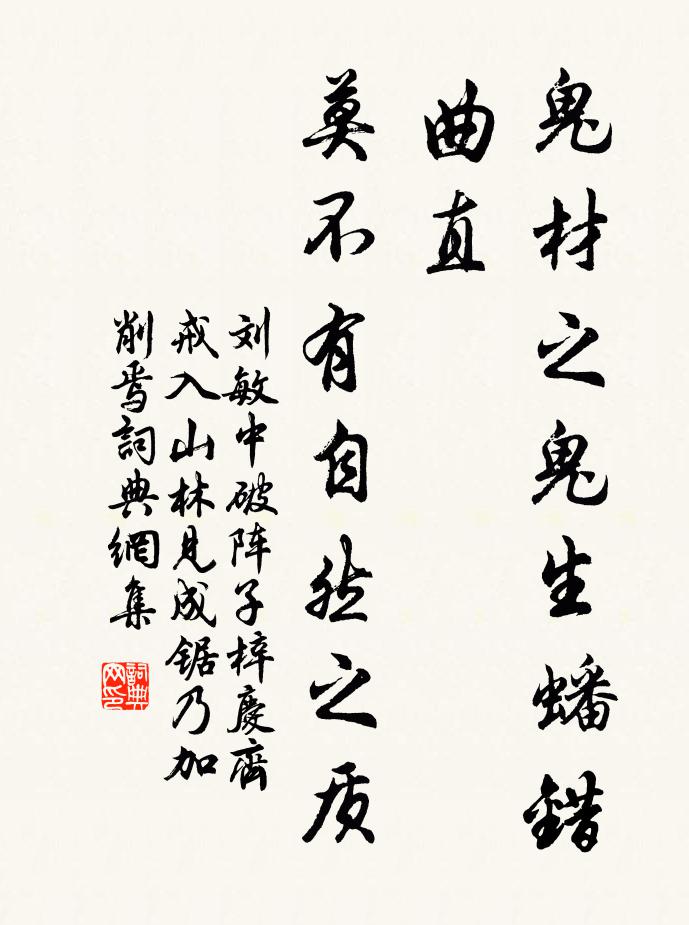 鬼材之鬼生蟠錯
曲直
莫不有自然之质
刘敏中破阵子梓慶齊
戒入山林見成鋸乃加
削焉詞典網集
詞典
网印